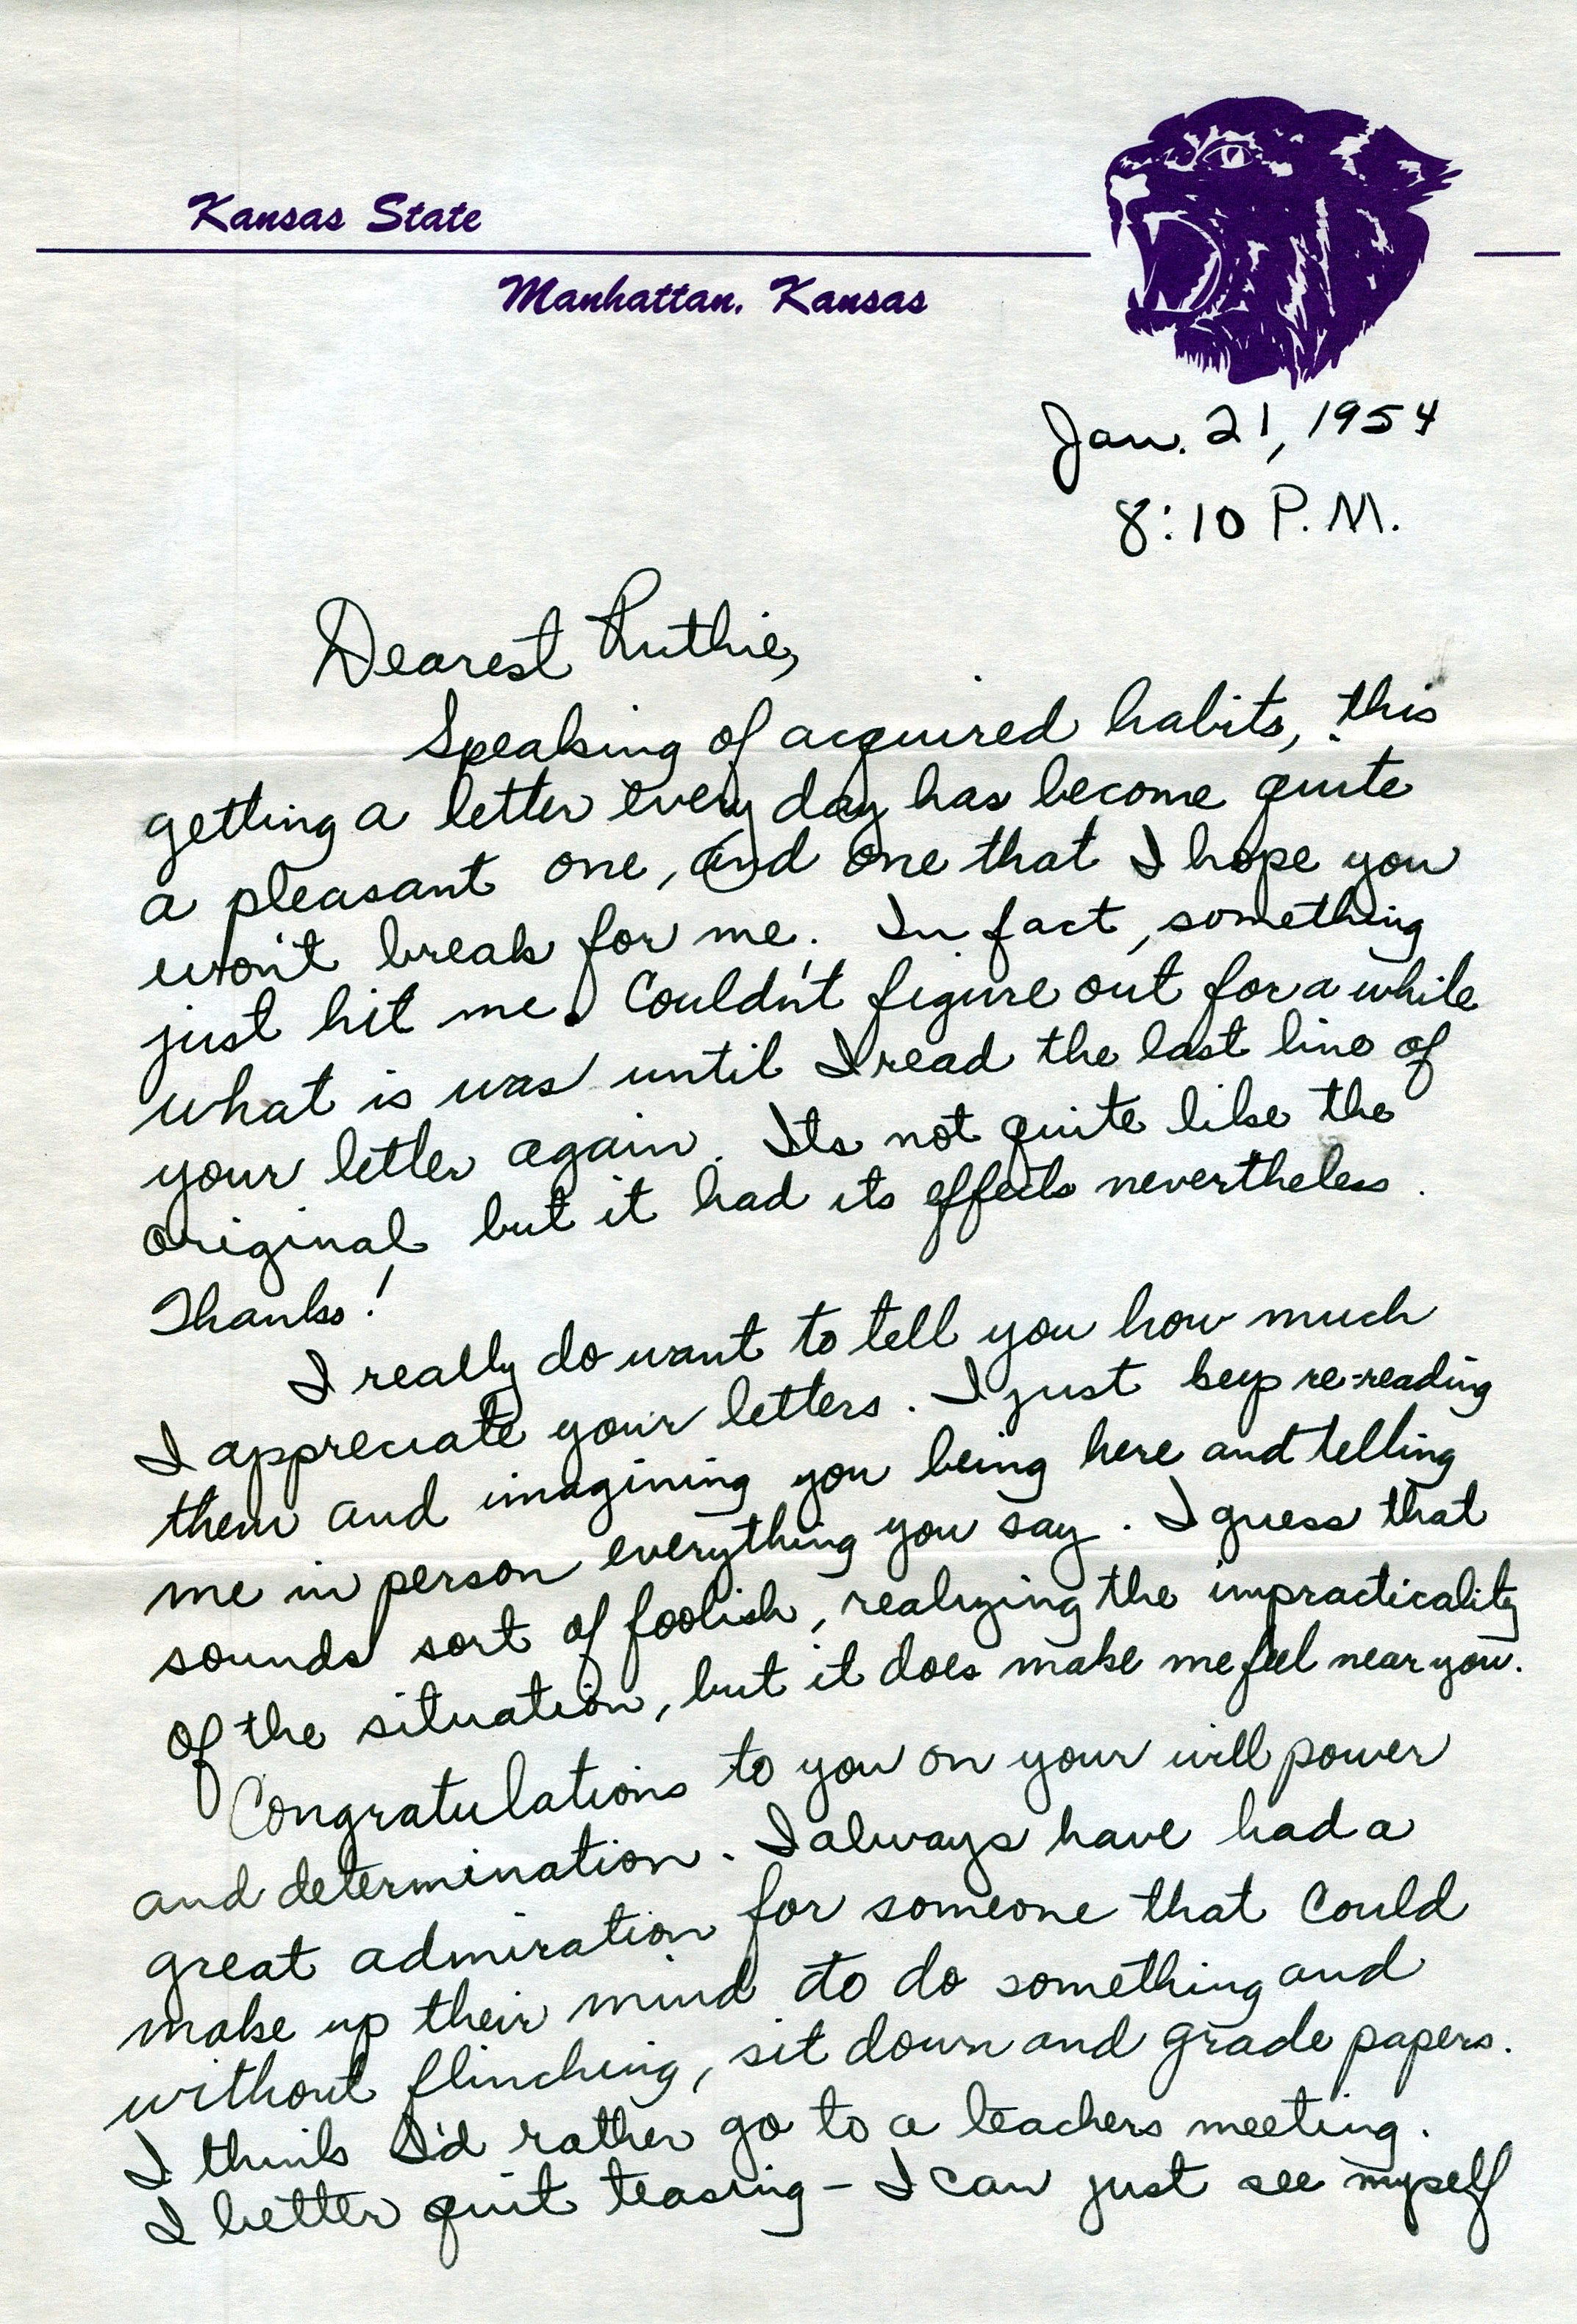 Kansas State
Manhattan, Kansas
Jan. 21, 1954
8:10 P.M.
Dearest Ruthie,
Speaking of acquired habits, this
getting a letter every day has become quite
a pleasant one, and one that I hope you
won't break for me. In fact, something
just hit me. Couldn't figure out for a while
what is was until I read the last line of
your letter again. Its not quite like the
original but it had its effects nevertheless.
Thanks!
I really do want to tell you how much
I appreciate your letters. I just keep re-reading
them and imagining you being here and telling
me in person everything you say. I guess that
sounds sort of foolish, realizing the impracticality
of the situation, but it does make me feel near you.
Congratulations to you on your will power
and determination. I always have had a
great admiration for someone that could
make up their mind to do something and
without flinching, sit down and grade papers.
I think I'd rather go to a teachers meeting.
I better quit teasing - I can just see myself